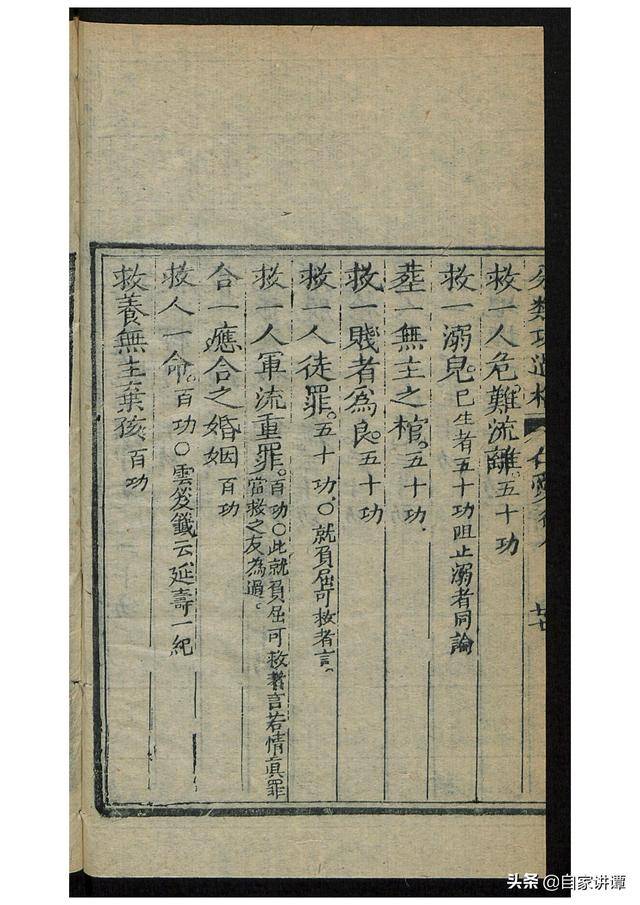 分類功過格
救一人危難流離。五十功
救一溺兒。已生者五十功阻止溺者同論
葬一無主之棺。五十功
救一賤者為良。五十功
救一人徒罪。五十功。○就負屈可救者言。
救一人軍流重罪。百功○此就負屈可救者言若情眞罪
當救之反為過。
合一應合之婚姻百功
救人一命。百功○雲笈籤云延壽一紀
救養無主棄孩百功
头条 @自家讲谭